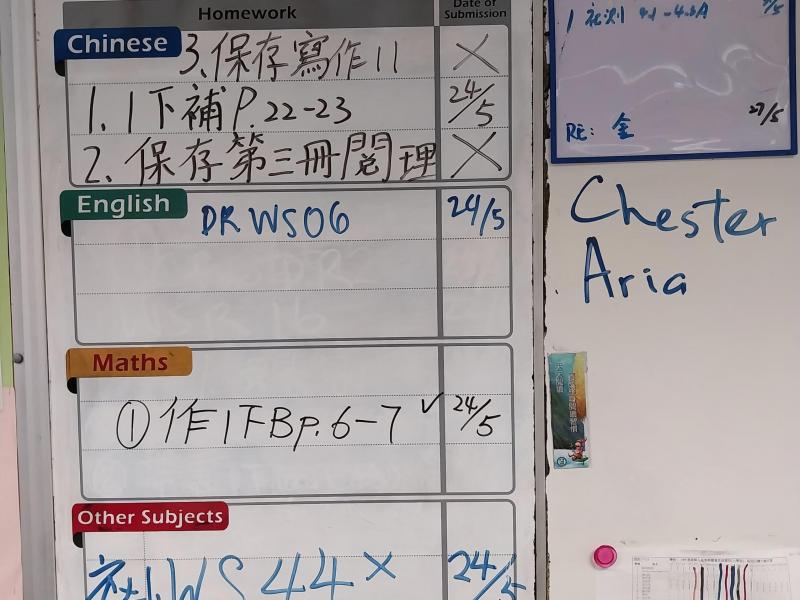 Homework
Date of Submission
Chinese
3.保存寫作11 X
1. 1下補P.22-23 24/5
2. 保存第三冊閱理 X
English
DR WS06 24/5
Maths
① 作1下B p.6-7 ✓ 24/5
Other Subjects
社.WS 44 X 24/5
RE: 金 27/5
Chester
Aria